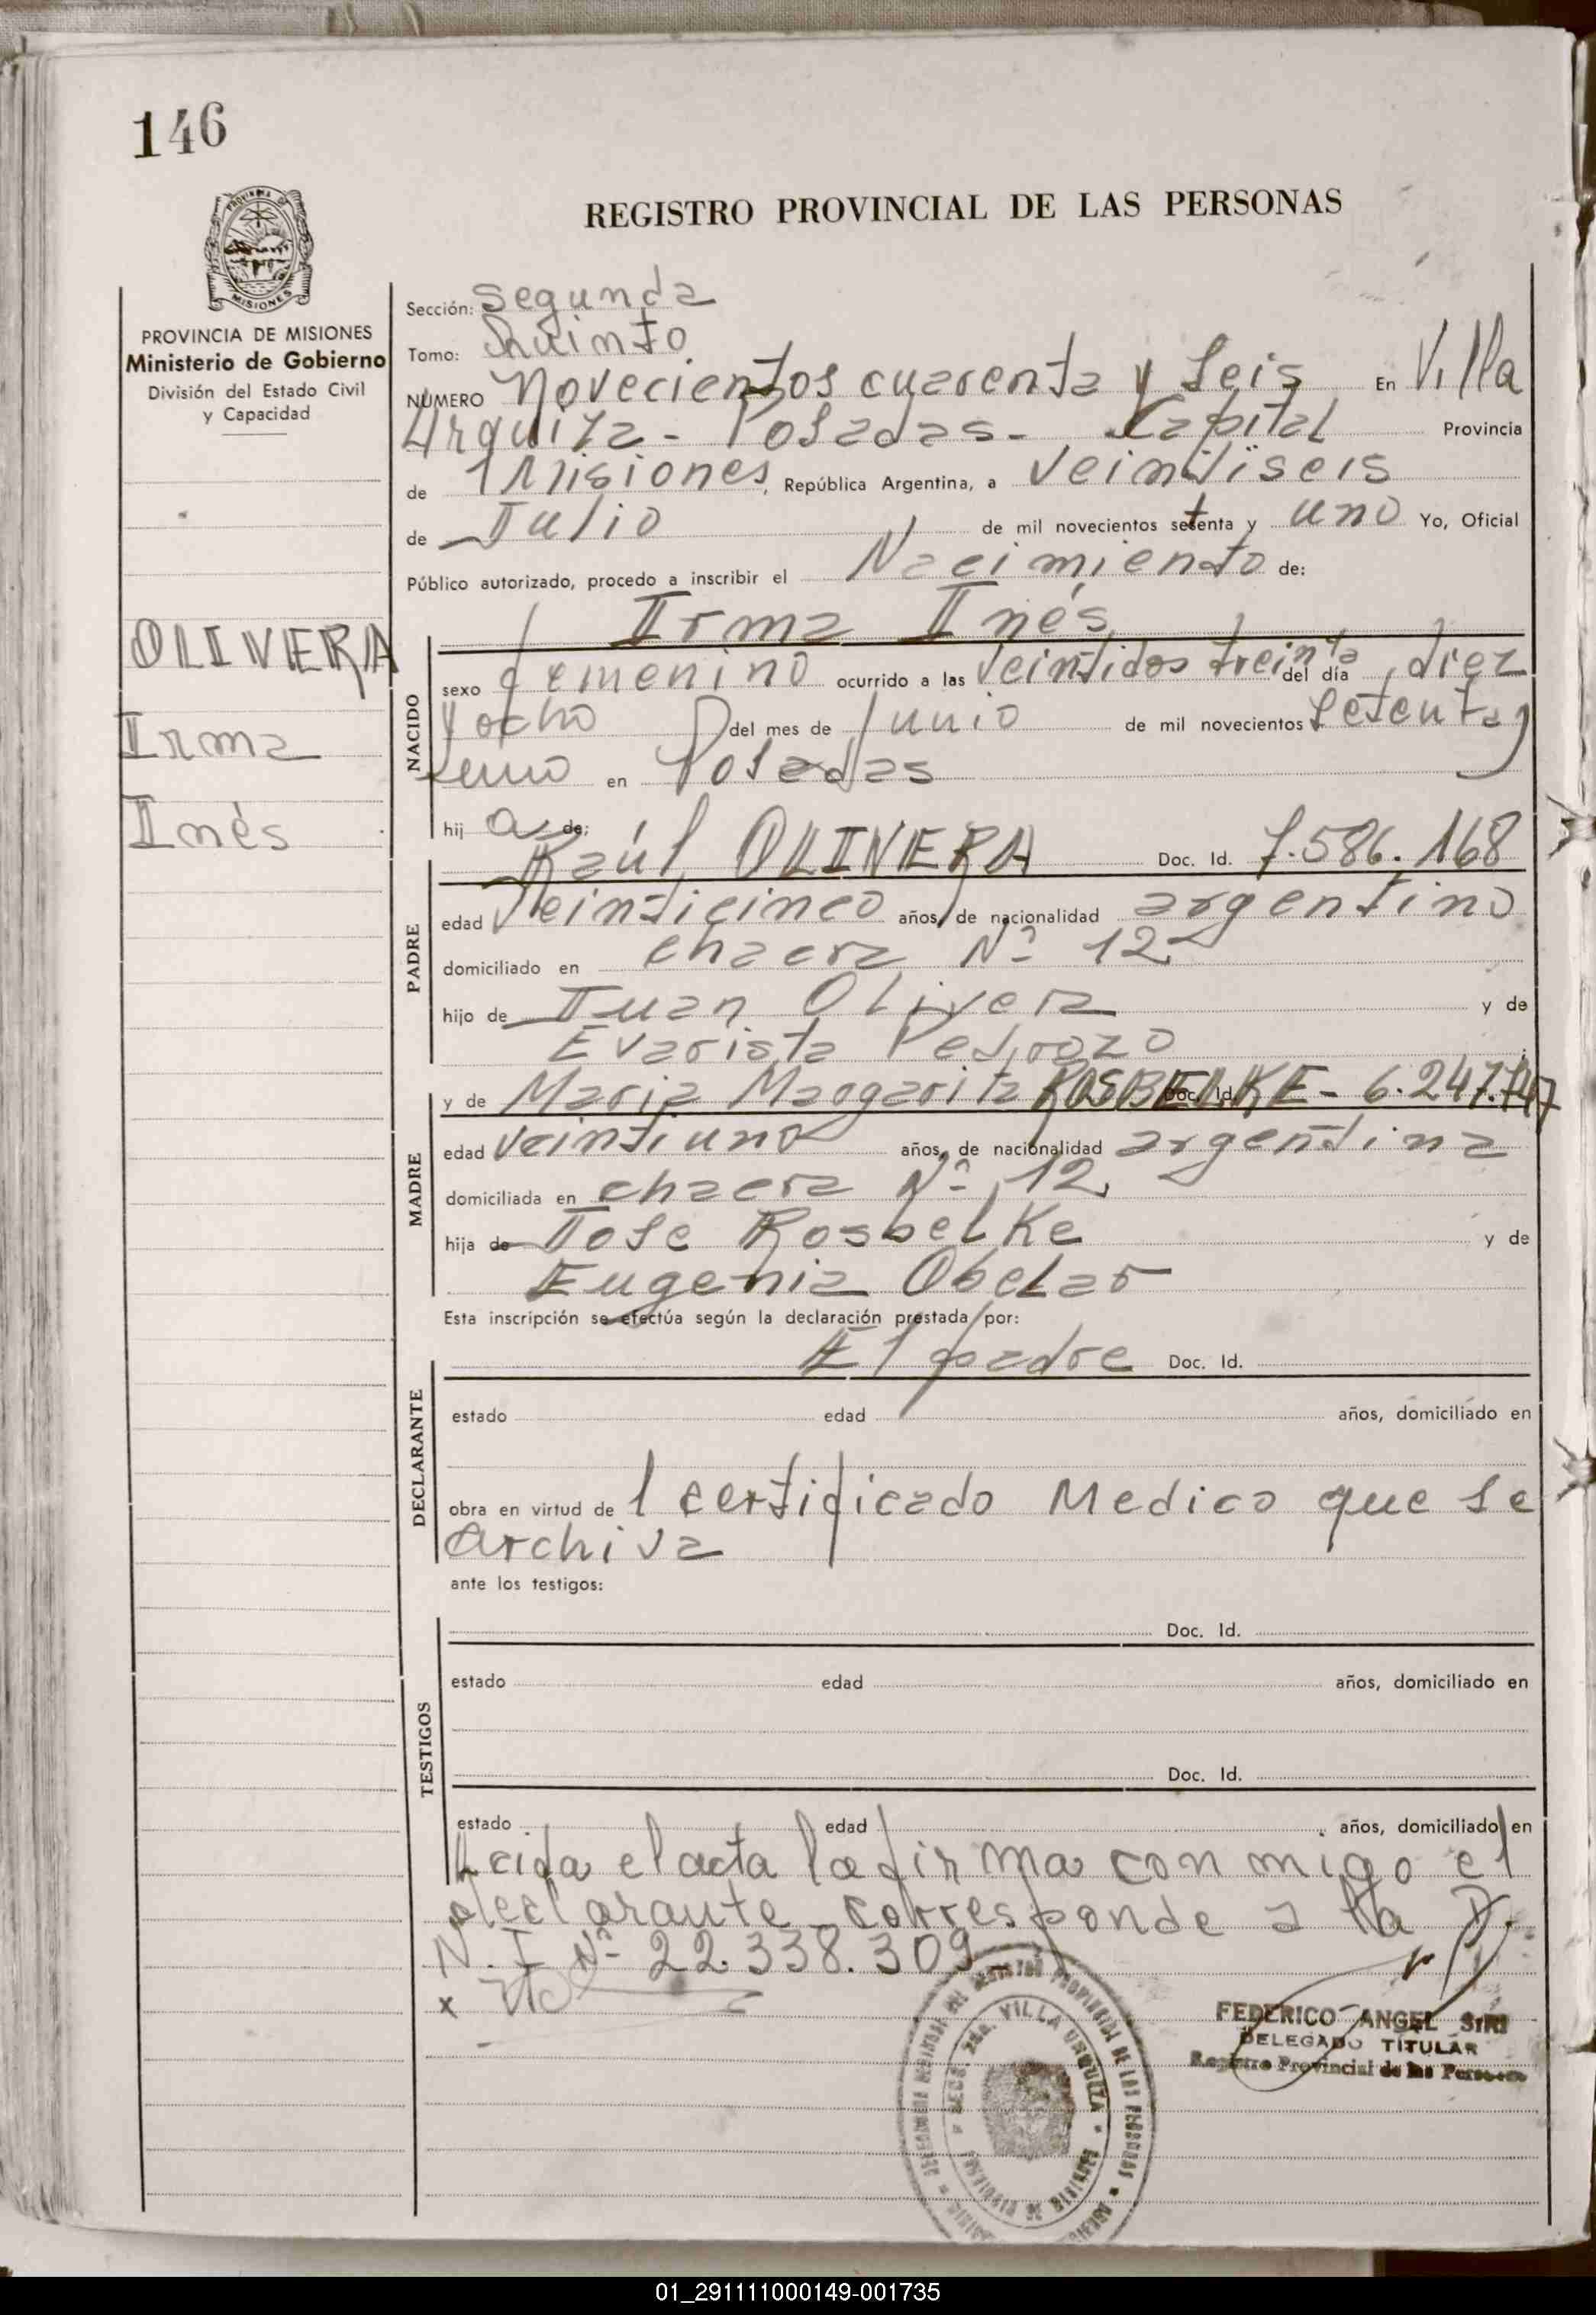 146
REGISTRO PROVINCIAL DE LAS PERSONAS
MISIONES
PROVINCIA DE MISIONES
Ministerio de Gobierno
División del Estado Civil
y Capacidad
OLIVERA
Irma
Inés
Sección: Segunda
Tomo: Quinto
NUMERO Novecientos cuarenta y Seis En Villa
Urquiza - Posadas - Capital Provincia
de Misiones, República Argentina, a Veintiseis
de Julio de mil novecientos setenta y uno Yo, Oficial
Público autorizado, procedo a inscribir el Nacimiento de:
Irma Inés
NACIDO
sexo femenino ocurrido a las Veintidos treinta del día diez
y ocho del mes de Junio de mil novecientos Setenta y
uno en Posadas
hij a de:
Raúl OLIVERA Doc. Id. 7.586.168
PADRE
edad Veinticinco años, de nacionalidad argentino
domiciliado en chacra Nº 12
hijo de Juan Olivera y de
Evarista Pedrozo
y de Maria Margarita ROSBELKE - Doc. Id. 6.247.747
MADRE
edad Veintiuno años, de nacionalidad argentina
domiciliada en chacra Nº 12
hija de Jose Rosbelke y de
Eugenia Obelar
Esta inscripción se efectúa según la declaración prestada por:
El padre Doc. Id.
DECLARANTE
estado edad años, domiciliado en
obra en virtud de l certificado Medico que se
archiva
ante los testigos:
Doc. Id.
TESTIGOS
estado edad años, domiciliado en
Doc. Id.
estado edad años, domiciliado en
Leida el acta la firma conmigo el
declarante - corresponde a la D.
N. I Nº 22.338.309 -
x
FEDERICO ANGEL SIRI
DELEGADO TITULAR
Registro Provincial de las Personas
SECC. 2da. VILLA URQUIZA
01_291111000149-001735